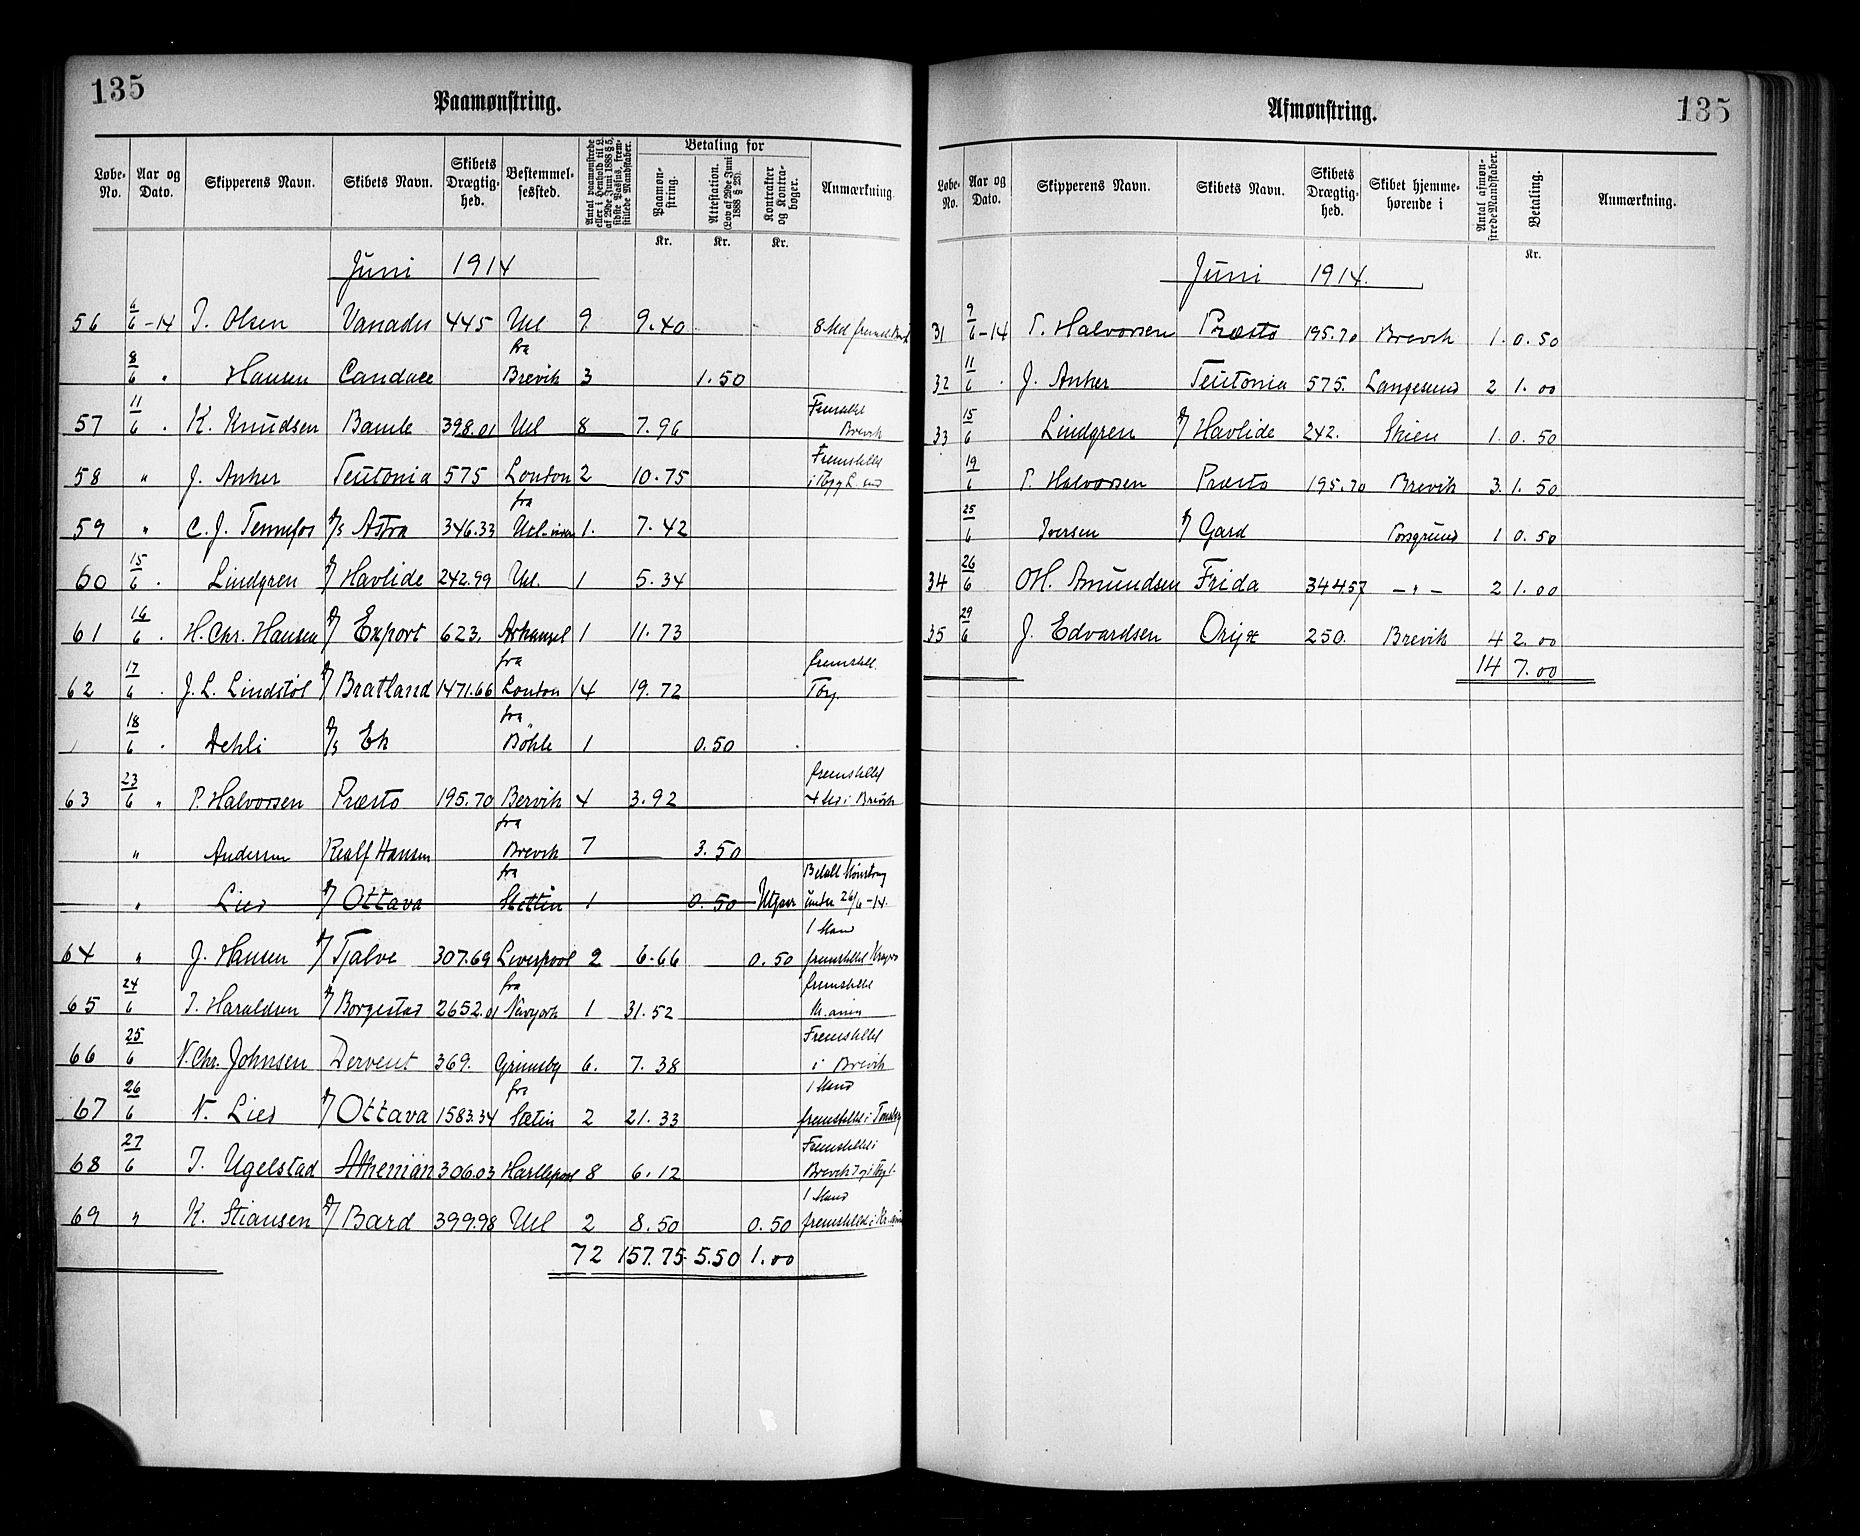 135
Paamønstring.
Løbe-No. | Aar og Dato. | Skipperens Navn. | Skibets Navn. | Skibets Drægtig-hed. | Bestemmel-sessted. | Antal paamønstrede eller i Henhold til L. af 29de Juni 1888 § 5, sidste Passus, frem-stillede Mandskaber. | Betaling for | Paamøn-string. Kr. | Attestation. (Lov af 29de Juni 1888 § 23). Kr. | Kontrakter og Kontra-bøger. Kr. | Anmærkning.
Juni 1914
56 | 6/6 -14 | J. Olsen | Vanadis | 445 | Utl | 9 | 9.40
8/6 " | Hansen | Candace | fra Brevik | 3 | 1.50
57 | 11/6 . | K. Knudsen | Bamle | 398.01 | Utl | 8 | 7.96 | Fremstillet Brevik
58 | " | J. Anker | Teutonia | 575 | London | 2 | 10.75 | Fremstillet
59 | " | C. J. Tennefos | D/S Astra | 346.33 | fra | 1. | 7.42
60 | 15/6 . | Lindgren | D/ Havlide | 242.99 | Utl. | 1 | 5.34
61 | 16/6 . | H. Chr. Hansen | D/ Export | 623. | Arhangel | 1 | 11.73
62 | 17/6 . | J. L. Lindstøl | D/ Bratland | 1471.66 | fra London | 14 | 19.72 | fremstill.
18/6 . | Dehli | D/S Ek | fra Böhle | 1 | 0.50
63 | 23/6 " | P. Halvorsen | Præsto | 195.70 | Bervik | 4 | 3.92 | fremstillet 4 i Brevik
" | Andersen | Realf Hansen | fra Brevik | 7 | 3.50
" | Lied | D/ Ottava | fra Stettin | 1 | 0.50 | Utgaar | Betalt Mønstring under 26/6 -14.
64 | " | J. Hansen | D/ Tjalve | 307.69 | Liverpool | 2 | 6.66 | 0.50 | 1 Mand fremstillet
65 | 24/6 | J. Haraldsen | D/ Borgestad | 2652.01 | fra Newyork | 1 | 31.52 | fremstillet Kr.ania
66 | 25/6 | N. Chr. Johnsen | Dervent | 369. | Grimsby | 6. | 7.38 | Fremstillet i Brevik
67 | 26/6 | N. Lied | D/ Ottava | 1583.34 | fra Stetin | 2 | 21.33 | 1 Mand fremstillet i Tønsberg
68 | 27/6 | J. Ugelstad | Athenian | 306.03 | Hartlepool | 8 | 6.12 | Fremstillet i Brevik
69 | " | K. Stiansen | D/ Bard | 399.98 | Utl | 2 | 8.50 | 0.50 | 1 Mand fremstilled i Kr.ania
72 | 157.75 | 5.50 | 1.00
135
Afmønstring.
Løbe-No. | Aar og Dato. | Skipperens Navn. | Skibets Navn. | Skibets Drægtig-hed. | Skibet hjemme-hørende i | Antal afmøn-strede Mandskaber. | Betaling. Kr. | Anmærkning.
Juni 1914.
31 | 9/6 -14 | P. Halvorsen | Præsto | 195.70 | Brevik | 1. | 0.50
32 | 11/6 . | J. Anker | Teutonia | 575. | Langesund | 2 | 1.00
33 | 15/6 | Lindgren | D/ Havlide | 242. | Skien | 1. | 0.50
19/6 | P. Halvorsen | Præsto | 195.70 | Brevik | 3. | 1.50
25/6 | Iversen | D/ Gard | Porsgrund | 1 | 0.50
34 | 26/6 | M. Amundsen | Frida | 344.57 | — " — | 2 | 1.00
35 | 29/6 | J. Edvardsen | Oryx | 250. | Brevik | 4 | 2.00
14 | 7.00